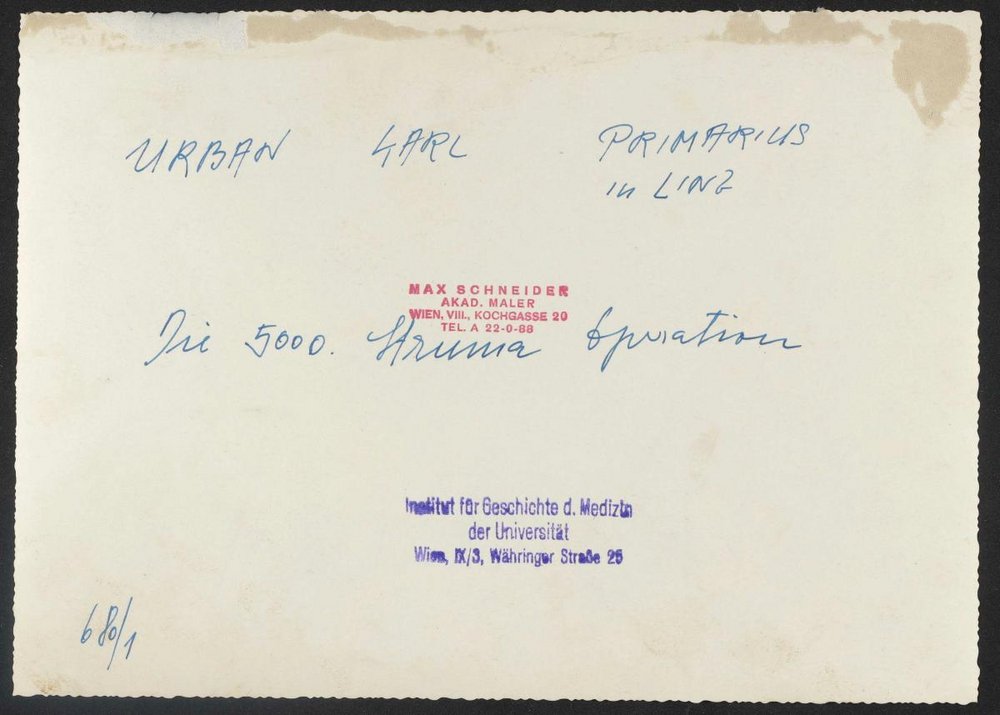 URBAN KARL PRIMARIUS
in LINZ
MAX SCHNEIDER
AKAD. MALER
WIEN, VIII., KOCHGASSE 20
TEL. A 22-0-88
Die 5000. Struma Operation
Institut für Geschichte d. Medizin
der Universität
Wien, IX/3, Währinger Straße 25
680/1